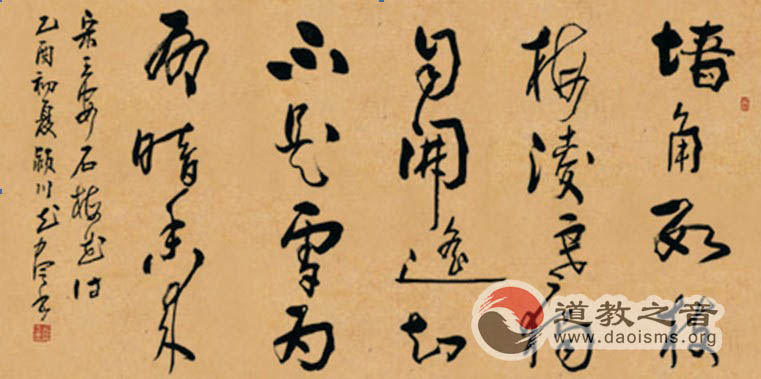 墙角数枝
梅凌寒独
自開遥知
不是雪为
有暗香来
宋王安石梅花诗
乙酉初夏
道教之音
www.daoisms.org